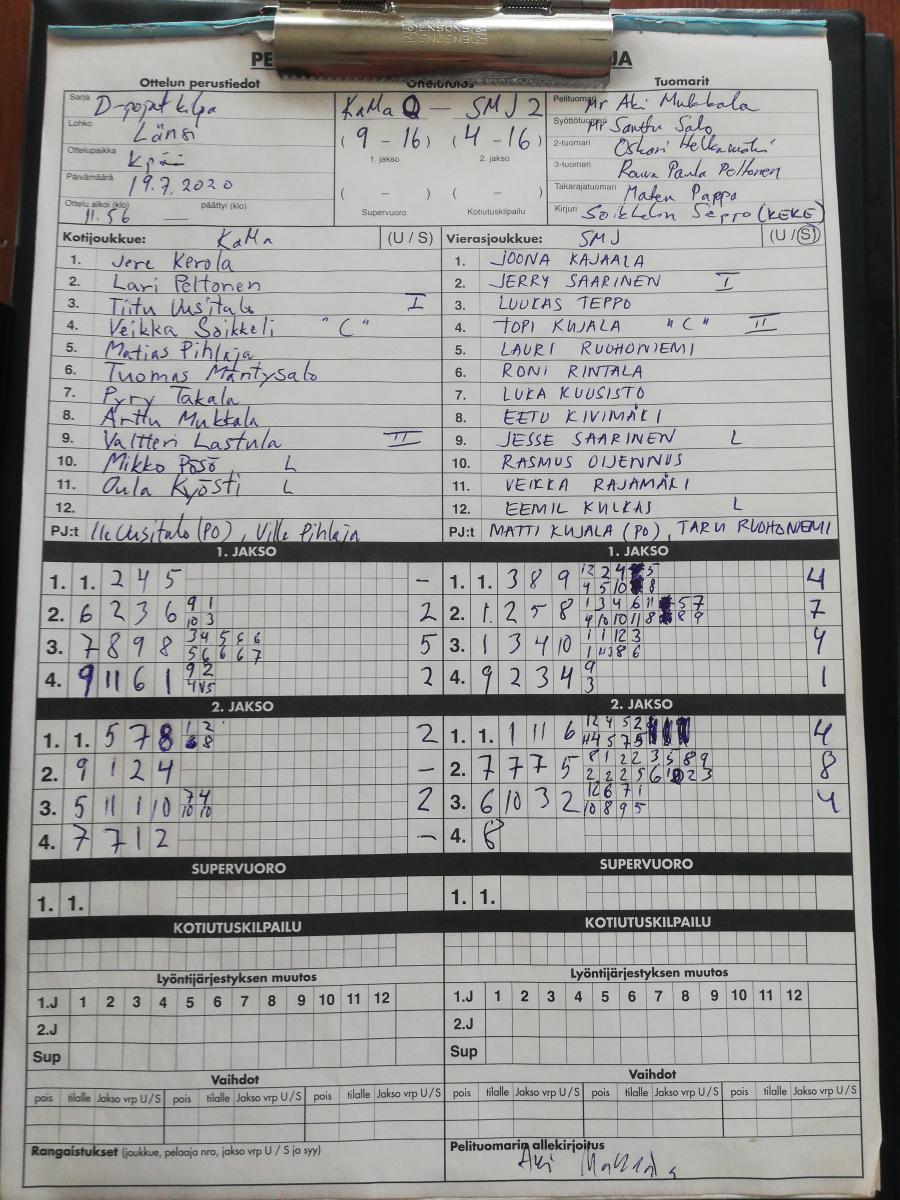 PE
JA
Ottelun perustiedot
Ottelutulos
Tuomarit
Sarja D-pojat kilpa
Lohko Länsi
Ottelupaikka
Päivämäärä 19.7.2020
Ottelu alkoi (klo) 11.56 — päättyi (klo)
KaMa 0 — SMJ 2
( 9 - 16 ) ( 4 - 16 )
1. jakso 2. jakso
( - ) ( - )
Supervuoro Kotiutuskilpailu
Pelituomari Mr Aki Mukkala
Syöttötuomari Mr Santtu Salo
2-tuomari Oskari
3-tuomari Rouva Paula Peltonen
Takarajatuomari Maten Pappa
Kirjuri Soikkelin Seppo (KEKE)
Kotijoukkue: KaMa (U / S)
1. Jere Kerola
2. Lari Peltonen
3. Tiitu Uusitalo I
4. Veikka Soikkeli "C"
5. Matias Pihlaja
6. Tuomas Mäntysalo
7. Pyry Takala
8. Arttu Mukkala
9. Valtteri Lastula II
10. Mikko Pösö L
11. Oula Kyösti L
12.
PJ:t Uusitalo (PO), Ville Pihlaja
Vierasjoukkue: SMJ (U / S)
1. JOONA KAJAALA
2. JERRY SAARINEN I
3. LUUKAS TEPPO
4. TOPI KUJALA "C" II
5. LAURI RUOHONIEMI
6. RONI RINTALA
7. LUKA KUUSISTO
8. EETU KIVIMÄKI
9. JESSE SAARINEN L
10. RASMUS OIJENNUS
11. VEIKKA RAJAMÄKI
12. EEMIL KULKAS L
PJ:t MATTI KUJALA (PO), TARU RUOHONIEMI
1. JAKSO
1. 1. 2 4 5 —
2. 6 2 3 6 9 1 2
10 3
3. 7 8 9 8 3 4 5 6 6 5
5 6 6 6 7
4. 9 11 6 1 9 2 2
4 5
1. JAKSO
1. 1. 3 8 9 12 2 4 5 4
4 5 10 8
2. 1 2 5 8 1 3 4 6 11 5 7 7
4 10 10 11 8 8 9
3. 1 3 4 10 1 1 12 3 4
1 4 8 6
4. 9 2 3 4 9 1
3
2. JAKSO
1. 1. 5 7 8 1 2 2
8
2. 9 1 2 4 —
3. 5 11 1 10 7 4 2
10 10
4. 7 7 1 2 —
2. JAKSO
1. 1. 1 11 6 12 4 5 2 4
4 5 7 5
2. 7 7 7 5 8 1 2 2 3 5 8 9 8
2 2 2 5 6 2 3
3. 6 10 3 2 12 6 7 1 4
10 8 9 5
4. 8
SUPERVUORO
1. 1.
SUPERVUORO
1. 1.
KOTIUTUSKILPAILU
KOTIUTUSKILPAILU
Lyöntijärjestyksen muutos
1.J 1 2 3 4 5 6 7 8 9 10 11 12
2.J
Sup
Lyöntijärjestyksen muutos
1.J 1 2 3 4 5 6 7 8 9 10 11 12
2.J
Sup
Vaihdot
pois tilalle Jakso vrp U / S pois tilalle Jakso vrp U / S pois tilalle Jakso vrp U / S
Vaihdot
pois tilalle Jakso vrp U / S pois tilalle Jakso vrp U / S pois tilalle Jakso vrp U / S
Rangaistukset (joukkue, pelaaja nro, jakso vrp U / S ja syy)
Pelituomarin allekirjoitus
Aki Mukkala